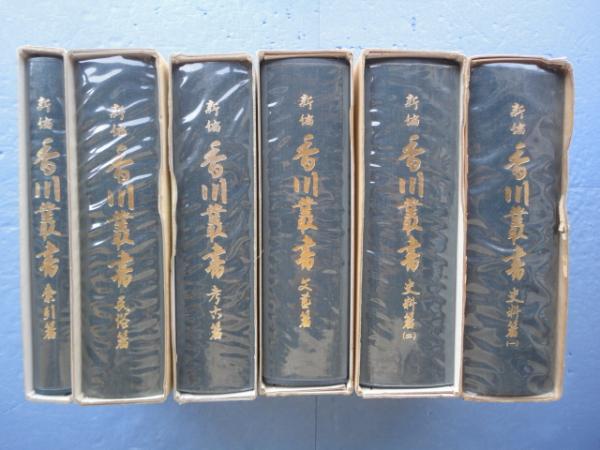 新編 香川叢書 史料篇(一)
新編 香川叢書 史料篇(二)
新編 香川叢書 文芸篇
新編 香川叢書 考古篇
新編 香川叢書 民俗篇
新編 香川叢書 索引篇